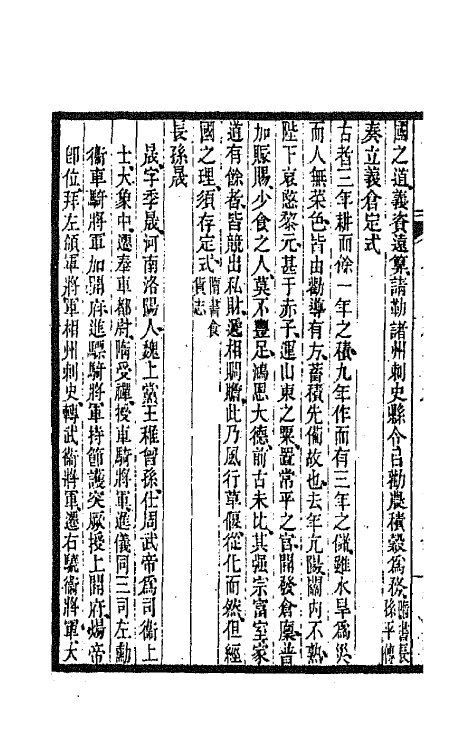 國之道義資遠算請勒諸州刺史縣令以勸農積穀爲務隋書長孫平傳
奏立義倉定式
古者三年耕而餘一年之積九年作而有三年之儲雖水旱爲災
而人無菜色皆由勸導有方蓄積先備故也去年亢陽關內不熟
陛下哀愍黎元甚于赤子運山東之粟置常平之官開發倉廩普
加賑賜少食之人莫不豐足鴻恩大德前古未比其强宗富室家
道有餘者皆競出私財遞相賙贍此乃風行草偃從化而然但經
國之理須存定式隋書食貨志
長孫晟
晟字季晟河南洛陽人魏上黨王稚曾孫仕周武帝爲司衞上
士大象中遷奉車都尉隋受禪授車騎將軍進儀同三司左勳
衞車騎將軍加開府進驃騎將軍持節護突厥授上開府煬帝
卽位拜左領軍將軍相州刺史轉武衞將軍遷右驍衞將軍大